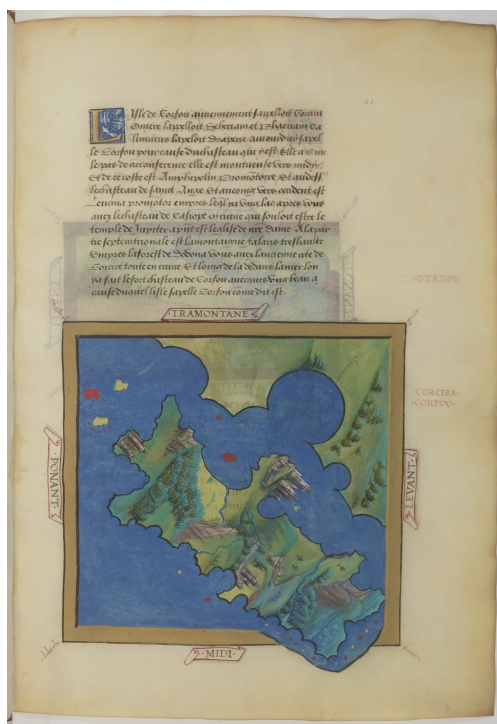 Lisle de Corfou anciennement sappelloit Corcira
Omere lappelloit Scheriam et Pheaciam Ca
limacus lappeloit Drapene aujourduy sapel
le Corfou pour cause du chasteau qui y est Elle a
le pas de acconference elle est montueuse vers midy
Et de ce coste est Amphipolin Promotoire Et audess
le chasteau de saint Ange Et encores vers occident est
Leucina promotor empres
avez le chasteau de Casiope en ruine qui souloit estre le
temple de Jupiter apres est leglise de nre dame A la par
tie septemtrionale est la montaigne falarix tres haulte
Empres la forest de Dodona Vous avez lancienne cite de
Corcire toute en ruine Et loing de la dedans la mer lon
y a fait le fort chasteau de Corfou avecques ung beau
cause duquel lisle sapelle Corfou come dit est
TRAMONTANE
CORCIRA
CORFOU
PONANT
LEVANT
MIDI